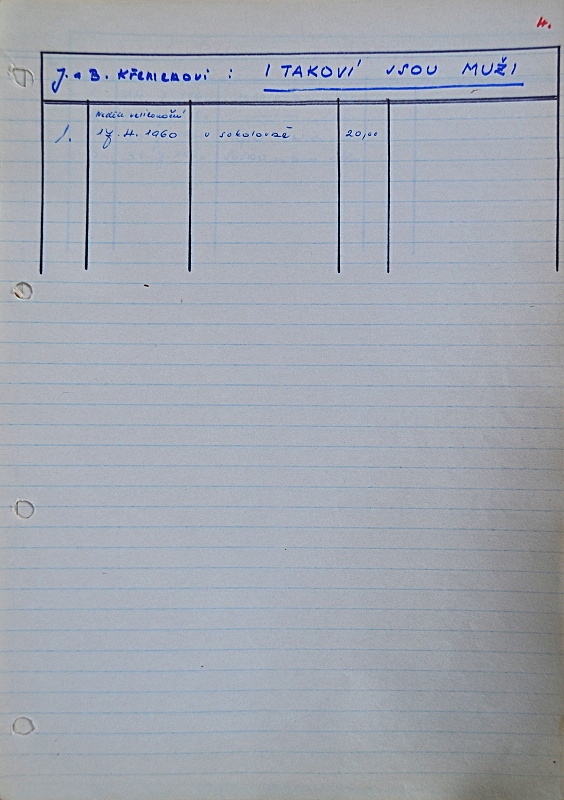 4.
J. a B. KŘEMENOVI : I TAKOVÍ JSOU MUŽI
neděle velikonoční
1. 17. 4. 1960 v sokolovně 20,00